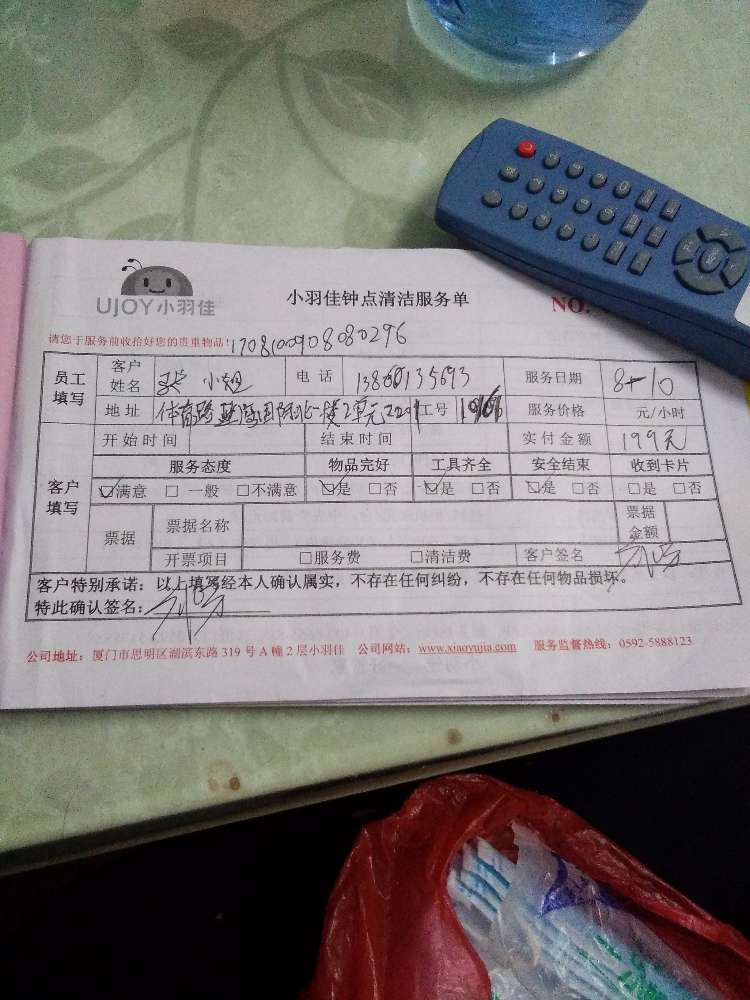 UJOY小羽佳
小羽佳钟点清洁服务单
NO.
请您于服务前收拾好您的贵重物品!
170810090808080296
员工填写 客户姓名 张小姐 电话 服务日期 8-10
地址 体育路 2单元 工号 服务价格 元/小时
客户填写 开始时间 结束时间 实付金额 199元
服务态度 物品完好 工具齐全 安全结束 收到卡片
☑满意 □一般 □不满意 ☑是 □否 ☑是 □否 ☑是 □否 □是 □否
票据 票据名称 票据金额
开票项目 □服务费 □清洁费 客户签名
客户特别承诺：以上填写经本人确认属实，不存在任何纠纷，不存在任何物品损坏。
特此确认签名：
公司地址：厦门市思明区湖滨东路319号A幢2层小羽佳 公司网站：www.xiaoyujia.com 服务监督热线：0592-5888123